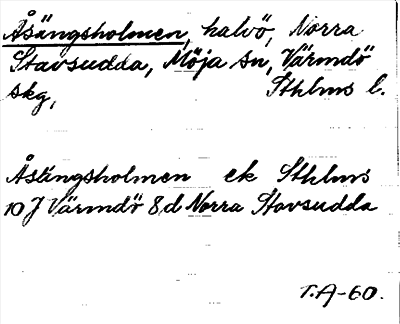 Åsängsholmen, halvö, Norra
Stavsudda, Möja sn, Värmdö
skg, Sthlms l.
Åsängsholmen ek Sthlms
10 J Värmdö 8 d Norra Stavsudda
T.A-60.